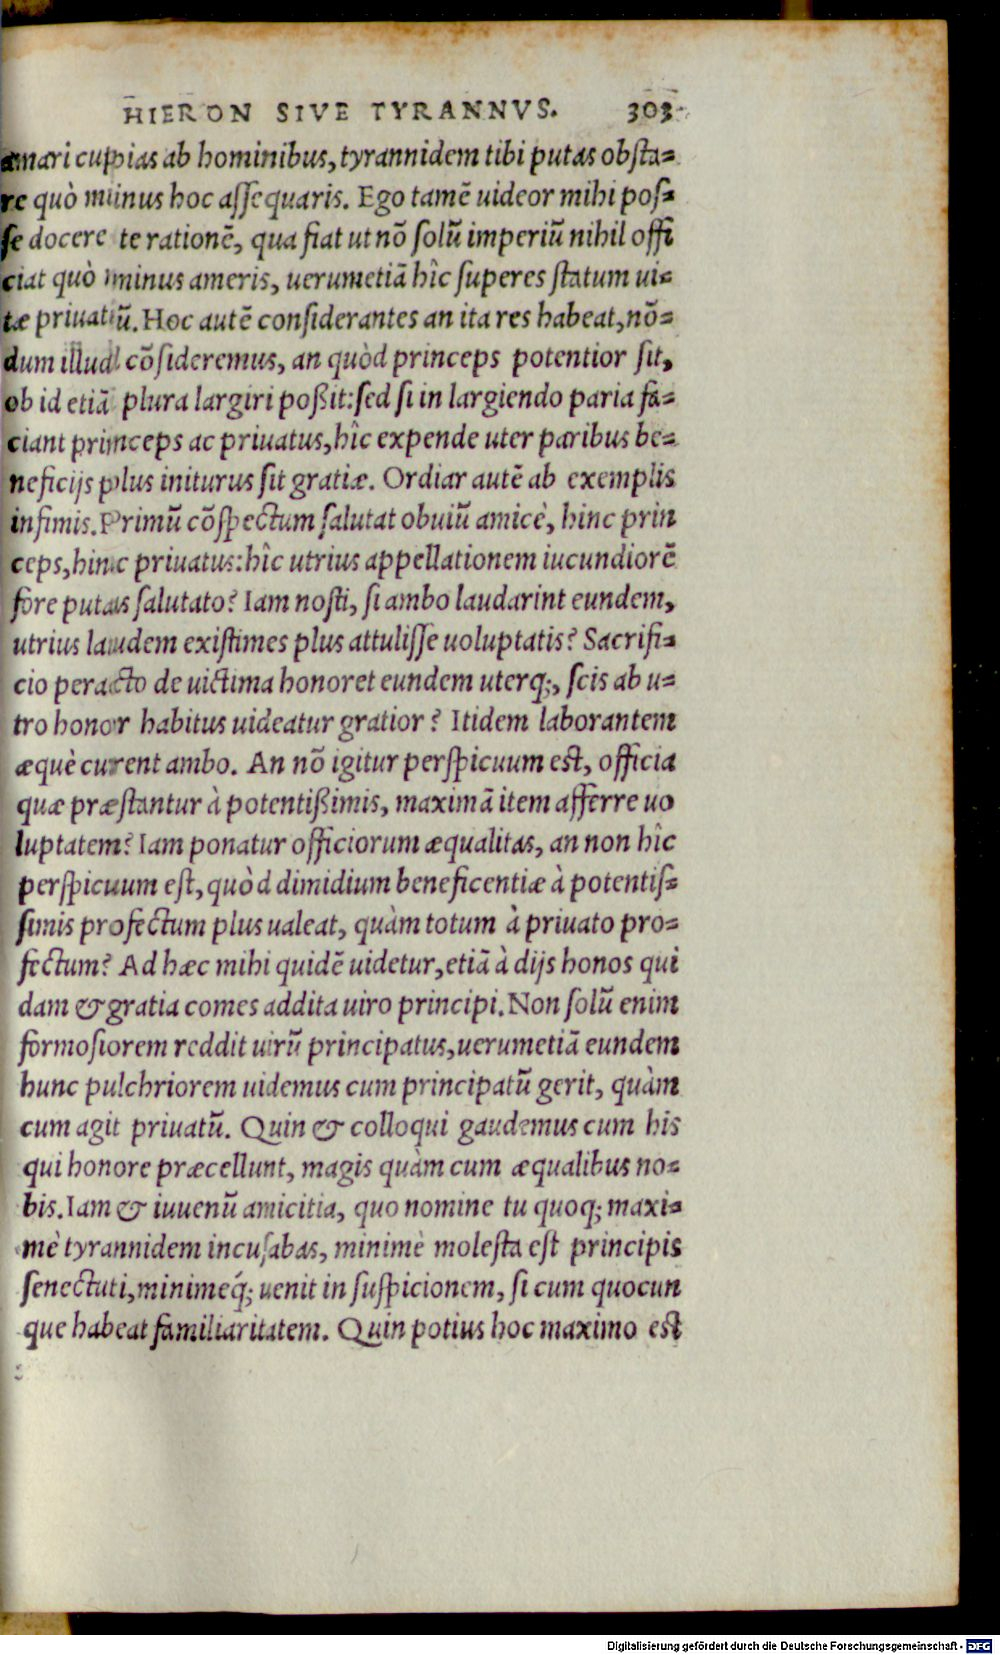 HIERON SIVE TYRANNVS. 303
amari cupias ab hominibus, tyrannidem tibi putas obsta=
re quò minus hoc assequaris. Ego tamẽ uideor mihi pos=
se docere te rationẽ, qua fiat ut nõ solũ imperiũ nihil offi
ciat quò minus ameris, uerumetiã hîc superes statum ui=
tæ priuatiũ. Hoc autẽ considerantes an ita res habeat, nõ=
dum illud cõsideremus, an quòd princeps potentior sit,
ob id etiã plura largiri poßit: sed si in largiendo paria fa=
ciant princeps ac priuatus, hîc expende uter paribus be=
neficijs plus initurus sit gratiæ. Ordiar autẽ ab exemplis
infimis. Primũ cõspectum salutat obuiũ amicè, hinc prin
ceps, hinc priuatus: hîc utrius appellationem iucundiorẽ
fore putas salutato? Iam nosti, si ambo laudarint eundem,
utrius laudem existimes plus attulisse uoluptatis? Sacrifi=
cio peracto de uictima honoret eundem uterq;, scis ab u=
tro honor habitus uideatur gratior? Itidem laborantem
æquè curent ambo. An nõ igitur perspicuum est, officia
quæ præstantur à potentißimis, maximã item afferre uo
luptatem? Iam ponatur officiorum æqualitas, an non hîc
perspicuum est, quòd dimidium beneficentiæ à potentis=
simis profectum plus ualeat, quàm totum à priuato pro=
fectum? Ad hæc mihi quidẽ uidetur, etiã à dijs honos qui
dam & gratia comes addita uiro principi. Non solũ enim
formosiorem reddit uirũ principatus, uerumetiã eundem
hunc pulchriorem uidemus cum principatũ gerit, quàm
cum agit priuatũ. Quin & colloqui gaudemus cum his
qui honore præcellunt, magis quàm cum æqualibus no=
bis. Iam & iuuenũ amicitia, quo nomine tu quoq; maxi=
mè tyrannidem incusabas, minimè molesta est principis
senectuti, minimeq́; uenit in suspicionem, si cum quocun
que habeat familiaritatem. Quin potius hoc maximo est
Digitalisierung gefördert durch die Deutsche Forschungsgemeinschaft - DFG